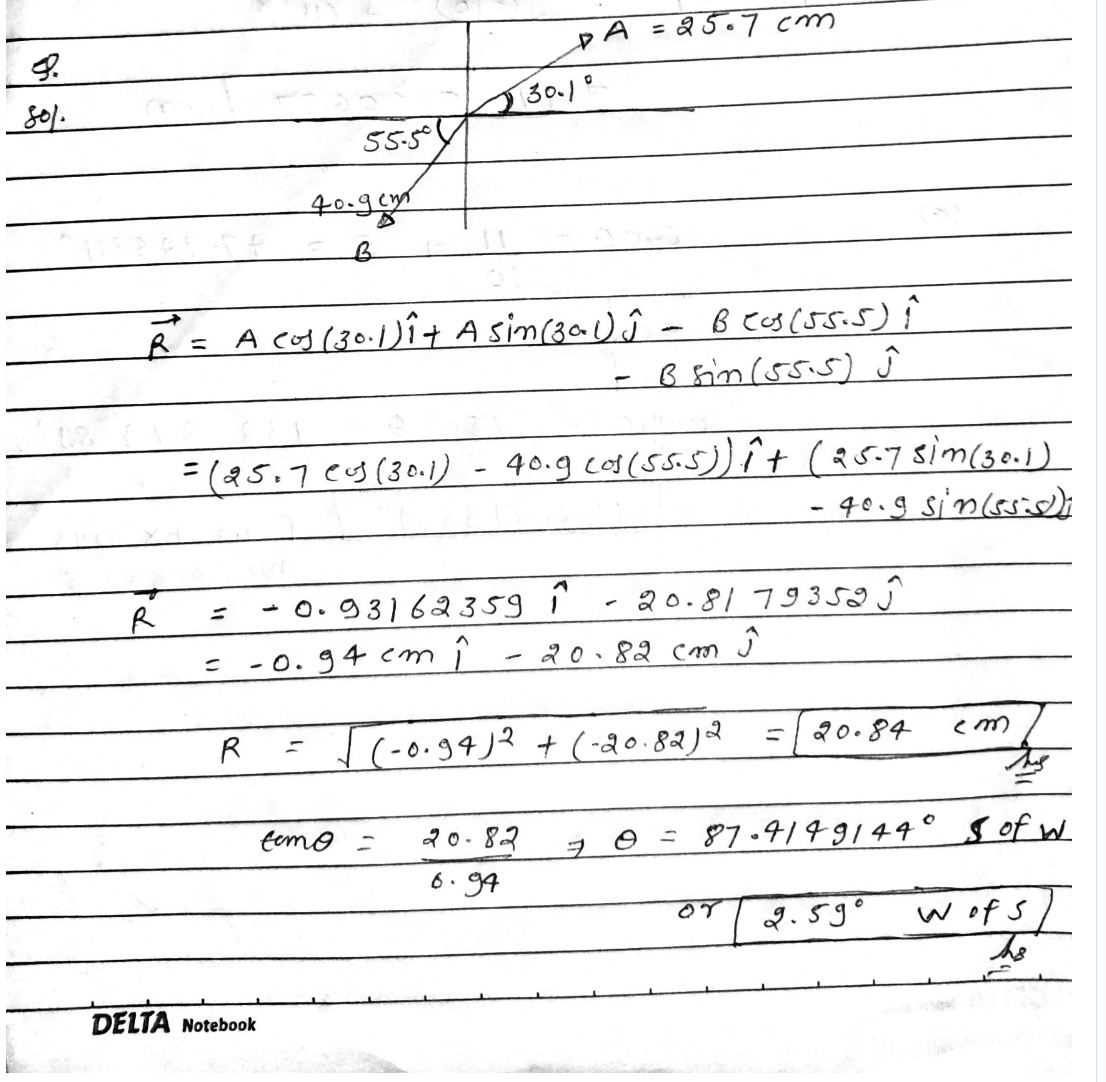 A = 25.7 cm
Q.
Sol.
30.1°
55.5°
40.9 cm
B
R⃗ = A cos(30.1) î + A sin(30.1) ĵ - B cos(55.5) î
- B sin(55.5) ĵ
= (25.7 cos(30.1) - 40.9 cos(55.5)) î + (25.7 sin(30.1)
- 40.9 sin(55.5)) ĵ
R⃗ = - 0.93162359 î - 20.8179352 ĵ
= -0.94 cm î - 20.82 cm ĵ
R = √(-0.94)² + (-20.82)² = 20.84 cm
tanθ = 20.82 / 0.94 ⇒ θ = 87.4149144° S of W
or 2.59° W of S
DELTA Notebook